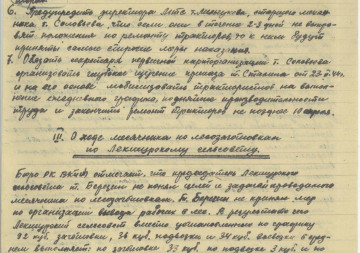 6. Предупредить директора МТС т. Мешкова, старшего меха-
ника т. Соловьева, что если они в течение 2-3 дней не выпра-
вят положения по ремонту тракторов, то к ним будут
приняты самые строгие меры наказания.
7. Обязать секретаря первичной парторганизации т. Соловьева
организовать глубокое изучение приказа т. Сталина от 23-II-44 г.
и на его основе мобилизовать трактористов на выпол-
нение ежедневного графика, поднятие производительности
труда и закончить ремонт тракторов не позднее 10 марта.
III. О ходе месячника по лесозаготовкам
по Лекшурскому сельсовету.
Бюро РК ВКП(б) отмечает, что председатель Лекшурского
сельсовета т. Берегин не понял целей и задачей проводимого
месячника по лесозаготовкам. Т. Берегин не принял мер
по организации вывода рабочих в лес. В результате чего
Лекшурский сельсовет вместо установленного по графику
92 куб. заготовки, 34 куб. подвозки и 34 куб. вывозки в сред-
нем выполняет: по заготовке 33 куб. по подвозке 3 куб. и по